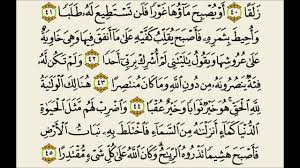 زَلَقًا ٤٠ أَوْ يُصْبِحَ مَآؤُهَا غَوْرًا فَلَن تَسْتَطِيعَ لَهُۥ طَلَبًا ٤١
وَأُحِيطَ بِثَمَرِهِۦ فَأَصْبَحَ يُقَلِّبُ كَفَّيْهِ عَلَىٰ مَآ أَنفَقَ فِيهَا وَهِيَ خَاوِيَةٌ
عَلَىٰ عُرُوشِهَا وَيَقُولُ يَٰلَيْتَنِي لَمْ أُشْرِكْ بِرَبِّيٓ أَحَدًا ٤٢ وَلَمْ تَكُن لَّهُۥ
فِئَةٌ يَنصُرُونَهُۥ مِن دُونِ ٱللَّهِ وَمَا كَانَ مُنتَصِرًا ٤٣ هُنَالِكَ ٱلْوَلَٰيَةُ
لِلَّهِ ٱلْحَقِّ هُوَ خَيْرٌ ثَوَابًا وَخَيْرٌ عُقْبًا ٤٤ وَٱضْرِبْ لَهُم مَّثَلَ ٱلْحَيَوٰةِ
ٱلدُّنْيَا كَمَآءٍ أَنزَلْنَٰهُ مِنَ ٱلسَّمَآءِ فَٱخْتَلَطَ بِهِۦ نَبَاتُ ٱلْأَرْضِ
فَأَصْبَحَ هَشِيمًا تَذْرُوهُ ٱلرِّيَٰحُ وَكَانَ ٱللَّهُ عَلَىٰ كُلِّ شَيْءٍ مُّقْتَدِرًا ٤٥